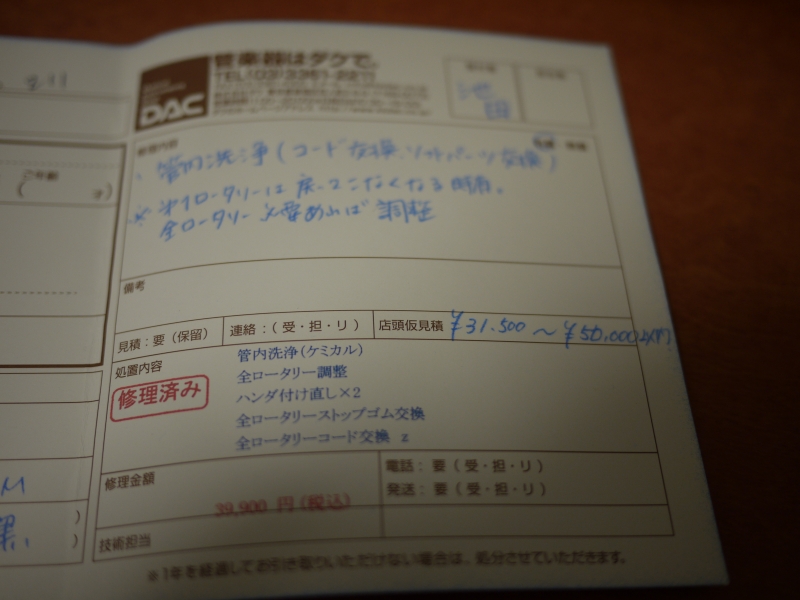 管楽器はダケで。
TEL:03(3361-2211
DAC
池田
ご年齢
(    才)
管内洗浄(コード交換、ソフトパーツ交換)
※ 才1ロータリーは戻ってこなくなる時有。
全ロータリー 必要あれば 調整
備考
見積:要(保留) 連絡:(受・担・リ) 店頭仮見積 ¥31.500～¥50,000以内
処置内容
修理済み
管内洗浄(ケミカル)
全ロータリー調整
ハンダ付け直し×2
全ロータリーストップゴム交換
全ロータリーコード交換 z
修理金額
39,900 円(税込)
電話: 要(受・担・リ)
発送: 要(受・担・リ)
技術担当
※1年を経過してお引き取りいただけない場合は、処分させていただきます。